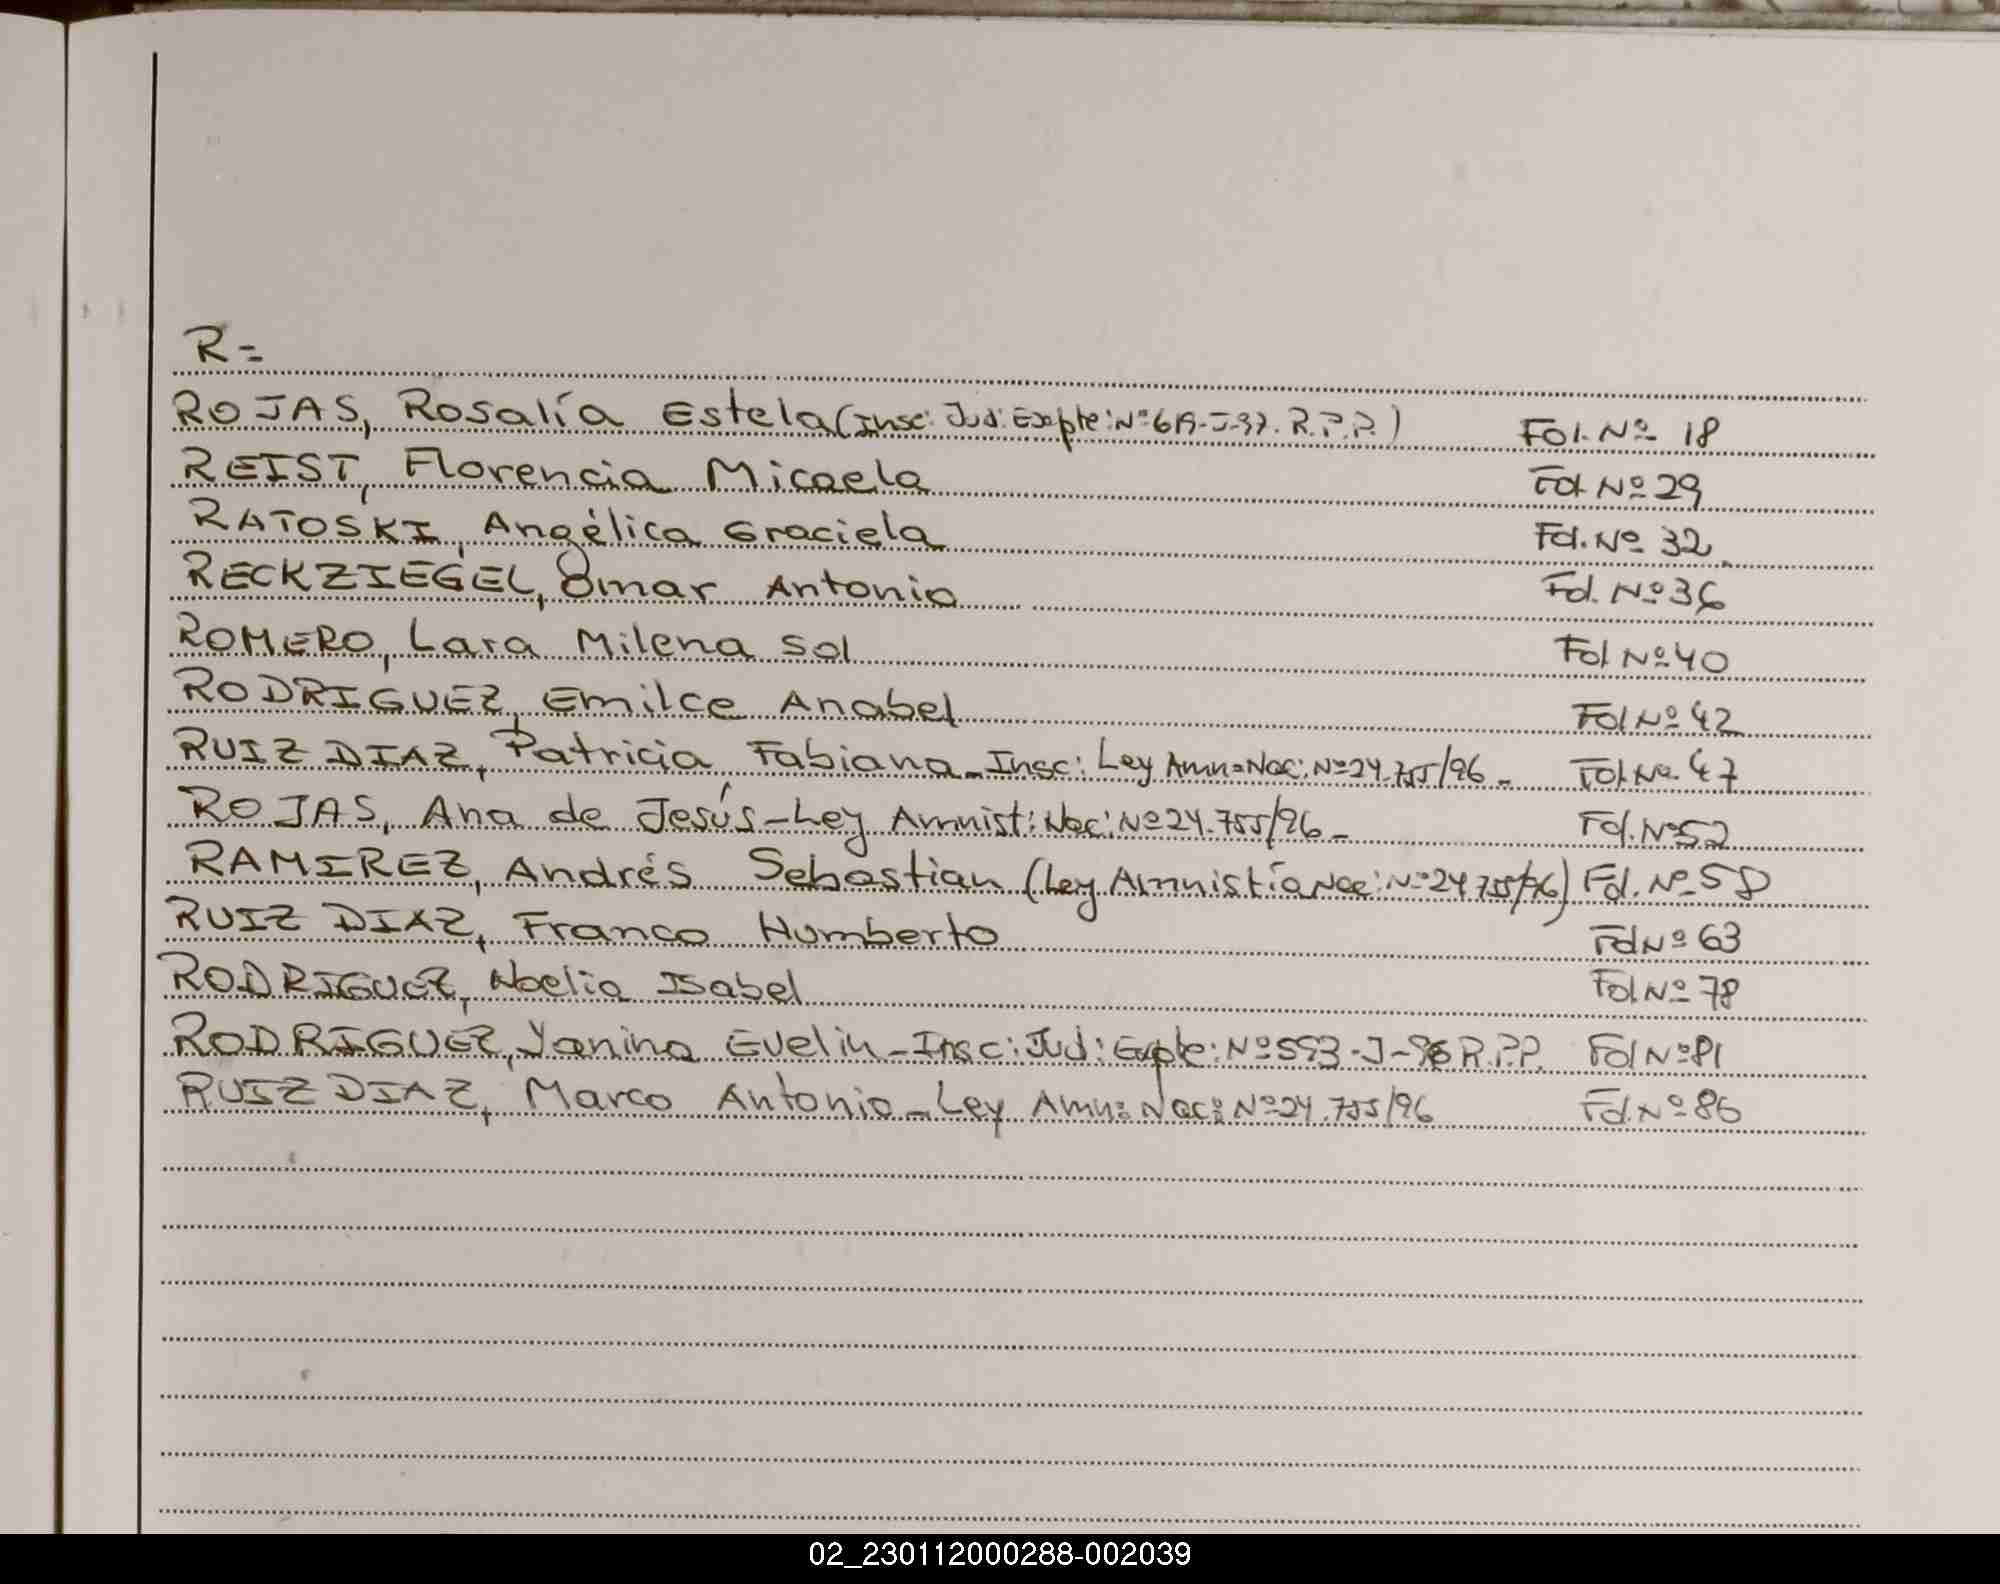 R=
ROJAS, Rosalía Estela (Insc: Jud: Expte: Nº 619-J-97. R.P.P.) Fol. Nº 18
REIST, Florencia Micaela Fol Nº 29
RATOSKI, Angélica Graciela Fol. Nº 32
RECKZIEGEL, Omar Antonio Fol. Nº 36
ROMERO, Lara Milena Sol Fol Nº 40
RODRIGUEZ, Emilce Anabel Fol Nº 42
RUIZ DIAZ, Patricia Fabiana_Insc: Ley Amn=Nac: Nº 24.755/96_ Fol. Nº. 47
ROJAS, Ana de Jesús-Ley Amnist: Nac: Nº 24.755/96_ Fol. Nº 52
RAMIREZ, Andrés Sebastian (Ley Amnistía Nac: Nº 24.755/96) Fol. Nº 58
RUIZ DIAZ, Franco Humberto Fol Nº 63
RODRIGUEZ, Noelia Isabel Fol Nº 78
RODRIGUEZ, Yanina Evelin_Insc: Jud: Expte: Nº 593-J-96 R.P.P. Fol Nº 81
RUIZ DIAZ, Marco Antonio_Ley Amn: Nac: Nº 24.755/96 Fol. Nº 86
02_230112000288-002039